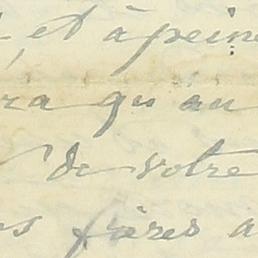 , et à peine
ra qu'au
de votre
es frères a